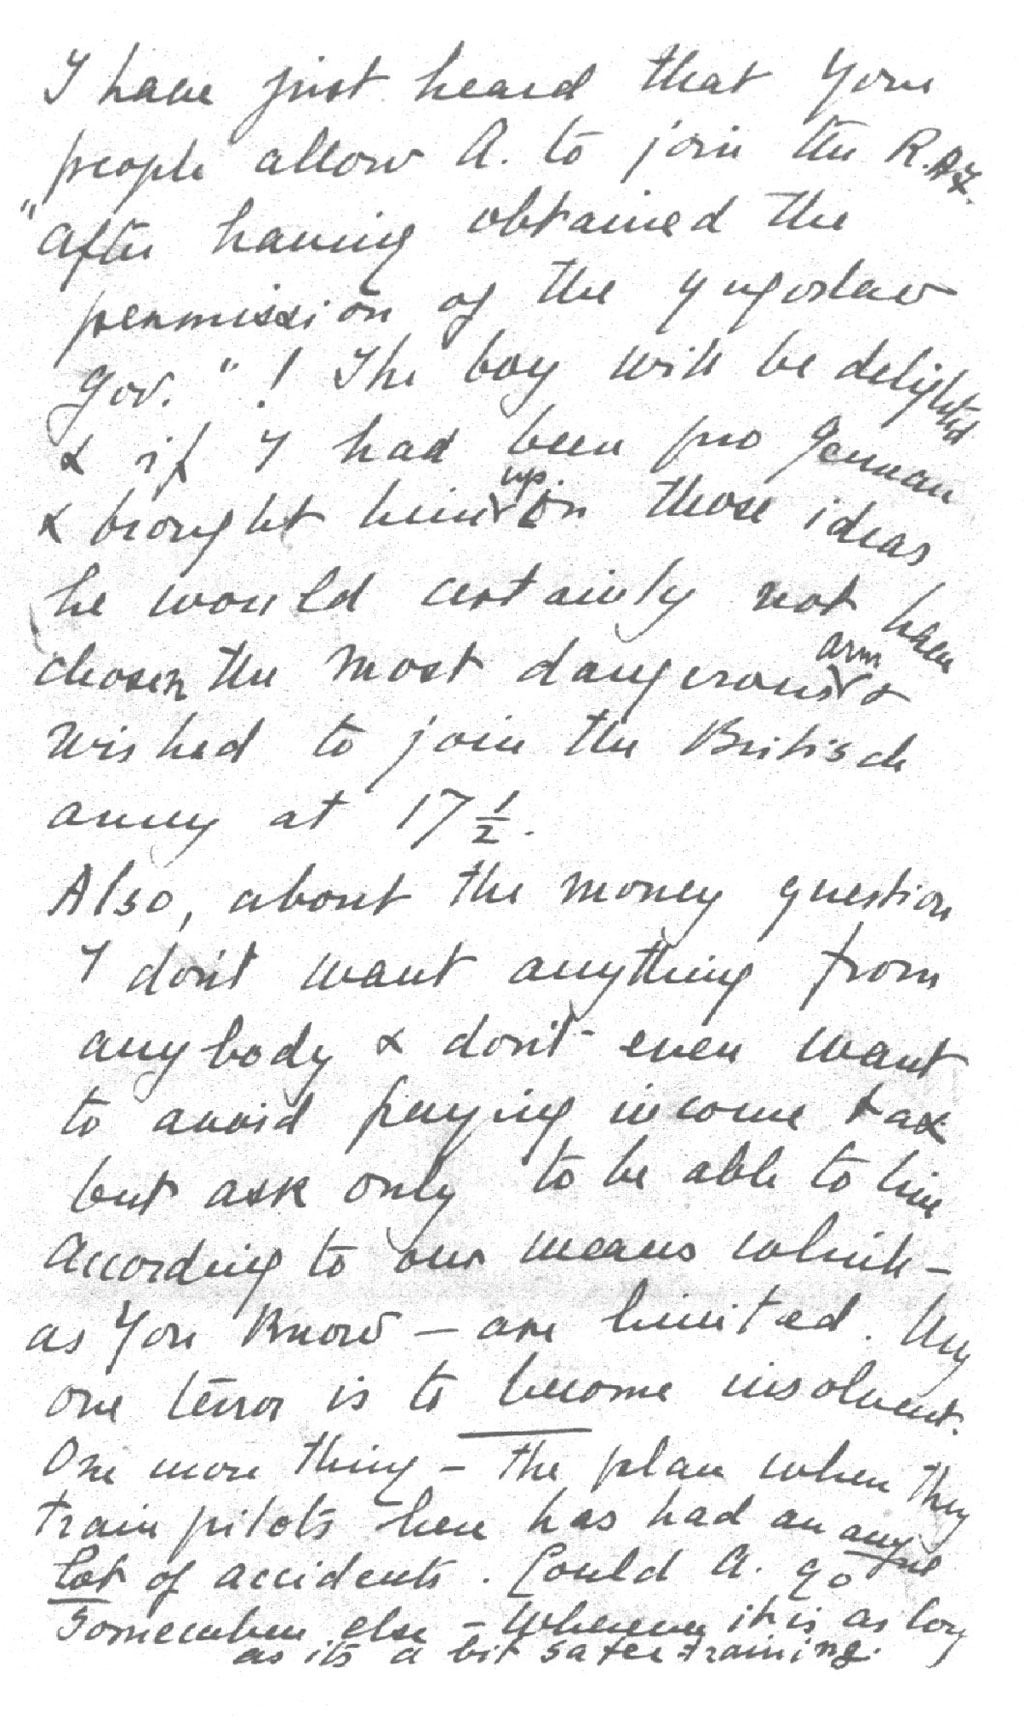 I have just heard that Your
people allow A. to join the R.A.F.
"after having obtained the
permission of the yugoslav
gov." ! The boy will be delighted
& if I had been pro German
& brought him up in those ideas
he would certainly not have
chosen the most dangerous arm &
wished to join the British
army at 17 ½.
Also, about the money question
I don't want anything from
anybody & don't even want
to avoid paying income tax
but ask only to be able to live
According to our means which –
as You know – are limited. My
one terror is to become insolvent.
One more thing – the place where they
train pilots here has had an
lot of accidents. Could A. go
Somewhere else – wherever it is as long
as its a bit safer training.